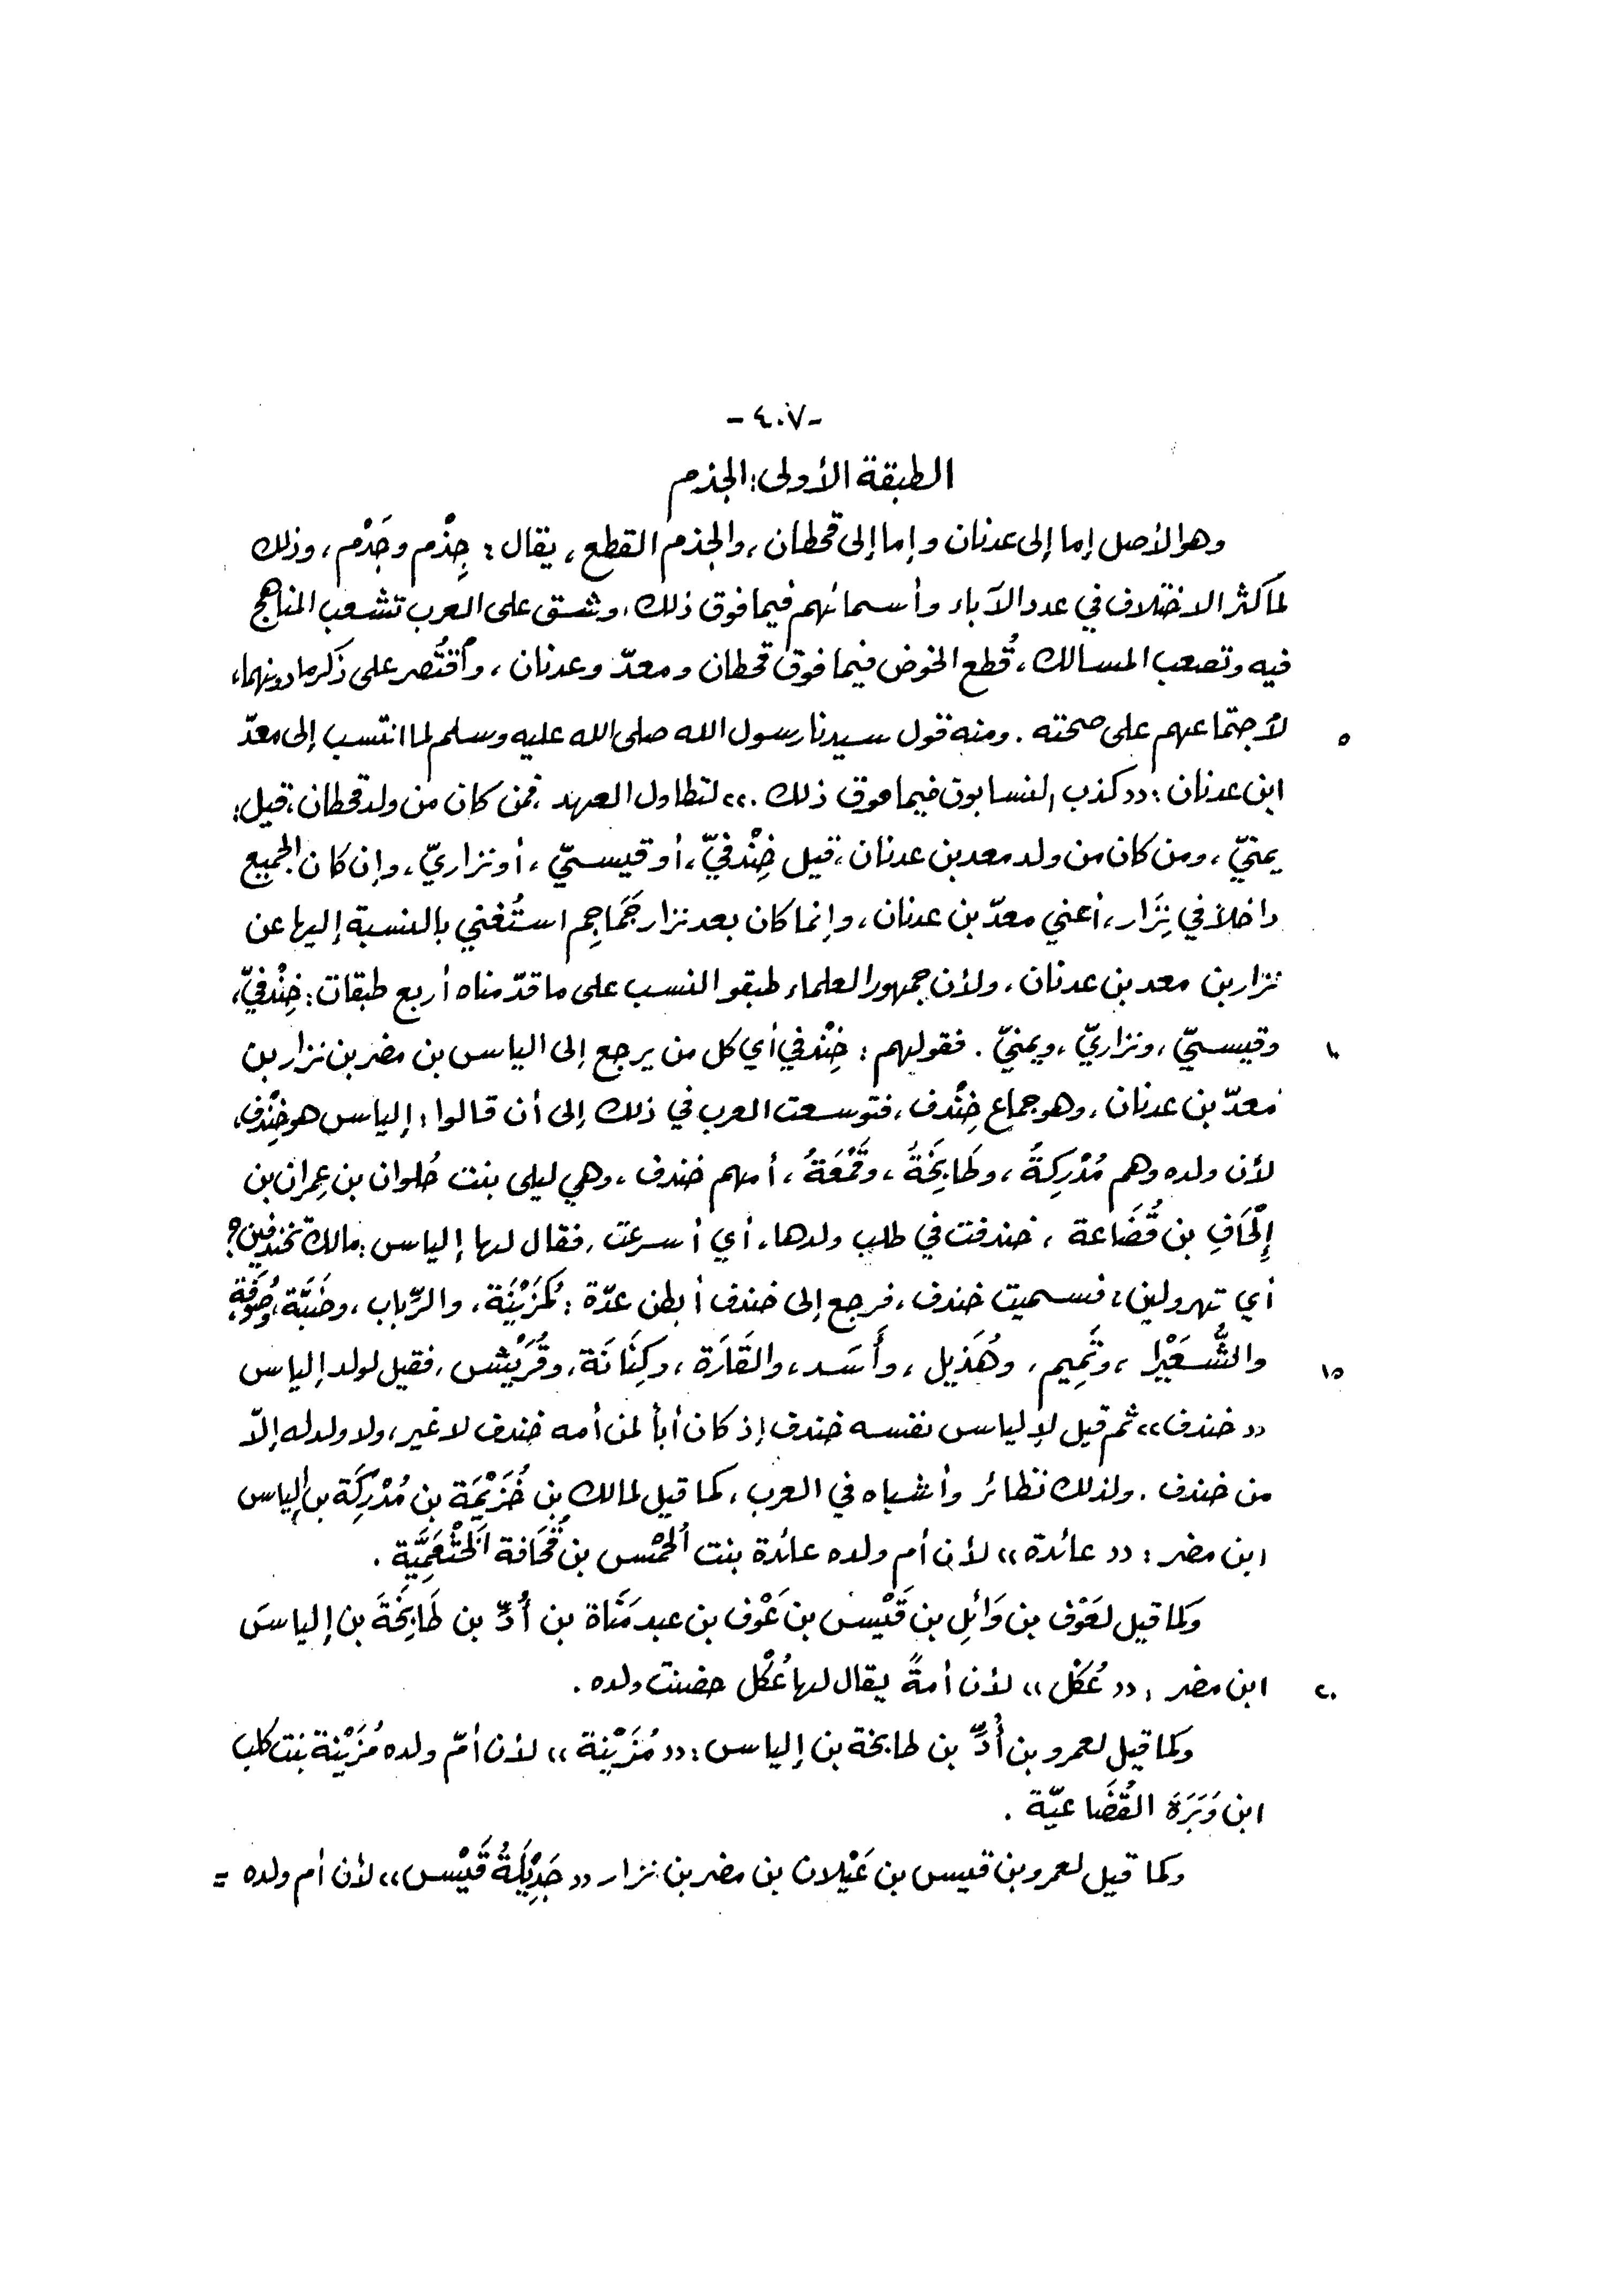 -٤٠٧-
الطبقة الأولى: الجذم
وهو الأصل إما إلى عدنان وإما إلى قحطان، والجذم القطع، يقال: جِذْم وجَذْم، وذلك
لما كثر الاختلاف في عدد الآباء وأسمائهم فيما فوق ذلك، وشق على العرب تشعب المناهج
فيه وتصعب المسالك، قُطع الخوض فيما فوق قحطان ومعدّ وعدنان، وأقتُصر على ذكر ما دونهما،
لأجتماعهم على صحته. ومنه قول سيدنا رسول الله صلى الله عليه وسلم لما انتسب إلى معدّ
٥
ابن عدنان: «كذب النسابون فيما فوق ذلك.» لتطاول العهد، فمن كان من ولد قحطان، قيل:
يمنيّ، ومن كان من ولد معد بن عدنان، قيل خِنْدفيّ، أو قيسيّ، أو نزاريّ، وإن كان الجميع
داخلاً في نِزَار، أعني معدّ بن عدنان، وإنما كان بعد نزار جَمَاجِم استُغني بالنسبة إليها عن
نزار بن معد بن عدنان، ولأن جمهور العلماء طبقو النسب على ما قدّمناه أربع طبقات: خِنْدفيّ،
وقيسيّ، ونزاريّ، ويمنيّ. فقولهم: خِنْدفي أي كل من يرجع إلى الياس بن مضر بن نزار بن
١٠
معدّ بن عدنان، وهو جماع خِنْدف، فتوسعت العرب في ذلك إلى أن قالوا: إلياس هو خِنْدف،
لأن ولده وهم مُدْرِكةُ، وطَابِخَةُ، وقَمْعَةُ، أمهم خندف، وهي ليلى بنت حُلوان بن عِمران بن
إِلْحَافِ بن قُضَاعة، خندفت في طلب ولدها، أي أسرعت، فقال لها إلياس: مالكِ تخندفين؟
أي تهرولين، فسميت خندف، فرجع إلى خندف أبطن عدّة: كمُزَيْنَة، والرِّباب، وضَبَّة، وصُوفَة،
والشُّعَيْرا، وتَمِيم، وهُذَيل، وأَسَد، والقَارَة، وكِنَانَة، وقُرَيْش، فقيل لولد إلياس
١٥
«خندف» ثم قيل لإلياس نفسه خندف إذ كان أباً لمن أمه خندف لا غير، ولا ولد له إلاّ
من خندف. ولذلك نظائر وأشباه في العرب، كما قيل لمالك بن خُزَيْمَة بن مُدْرِكَة بن إلياس
ابن مضر: «عائدة» لأن أم ولده عائدة بنت الخُمْس بن قُحَافة الخَثْعَمِيَّة.
وكما قيل لعَوْف بن وَائِل بن قَيْس بن عَوْف بن عبد مَنَاة بن أُدِّ بن طَابِخَةَ بن إلياسَ
ابن مضر: «عُكْل» لأن أمةً يقال لها عُكْل حضنت ولده.
٢٠
وكما قيل لعمرو بن أُدِّ بن طابخة بن إلياس: «مُزَيْنة» لأن أمّ ولده مُزَيْنة بنت كلب
ابن وَبَرَة القُضَاعيّة.
وكما قيل لعمرو بن قيس بن عَيْلان بن مضر بن نزار «جَدِيْلَةُ قَيْس» لأن أم ولده =